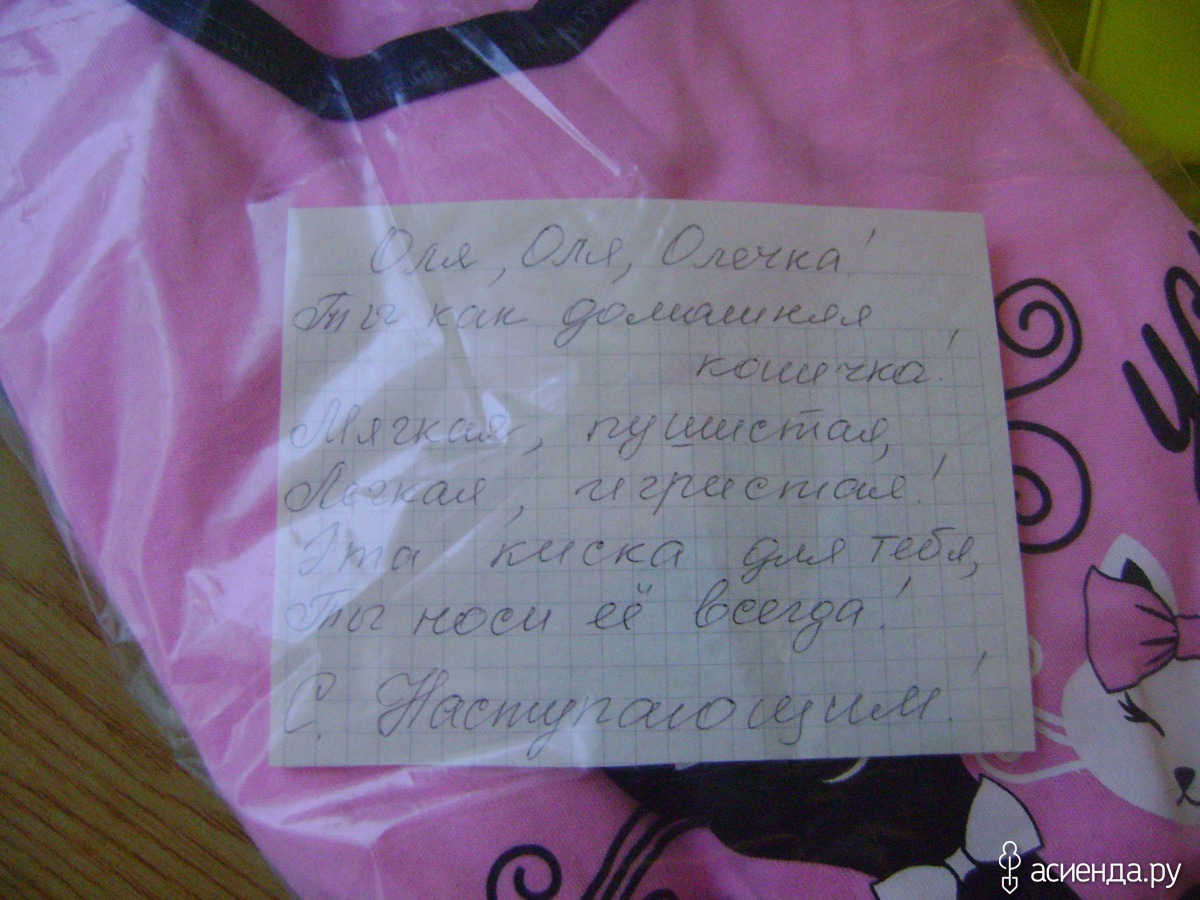 Оля, Оля, Олечка!
Ты как домашняя
кошечка!
Мягкая, пушистая,
Легкая, игристая!
Эта киска для тебя,
Ты носи её всегда!
С Наступающим!
асиенда.ру